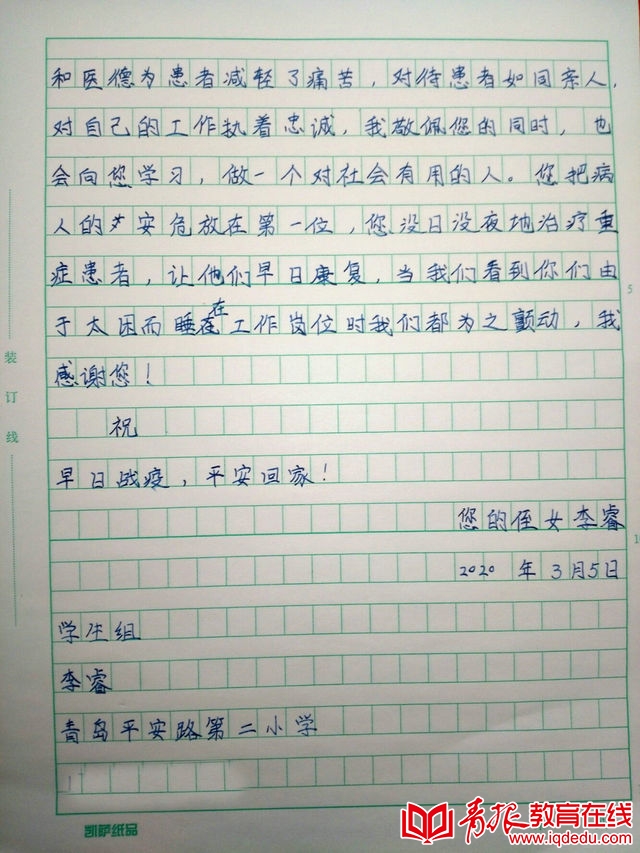 和医德为患者减轻了痛苦，对待患者如同亲人，
对自己的工作执着忠诚，我敬佩您的同时，也
会向您学习，做一个对社会有用的人。您把病
人的安危放在第一位，您没日没夜地治疗重
症患者，让他们早日康复，当我们看到你们由
于太困而睡在工作岗位时我们都为之颤动，我
感谢您！
祝
早日战疫，平安回家！
您的侄女李睿
2020年3月5日
学生组
李睿
青岛平安路第二小学
装订线
5
10
凯萨纸品
青报教育在线
www.iqdedu.com